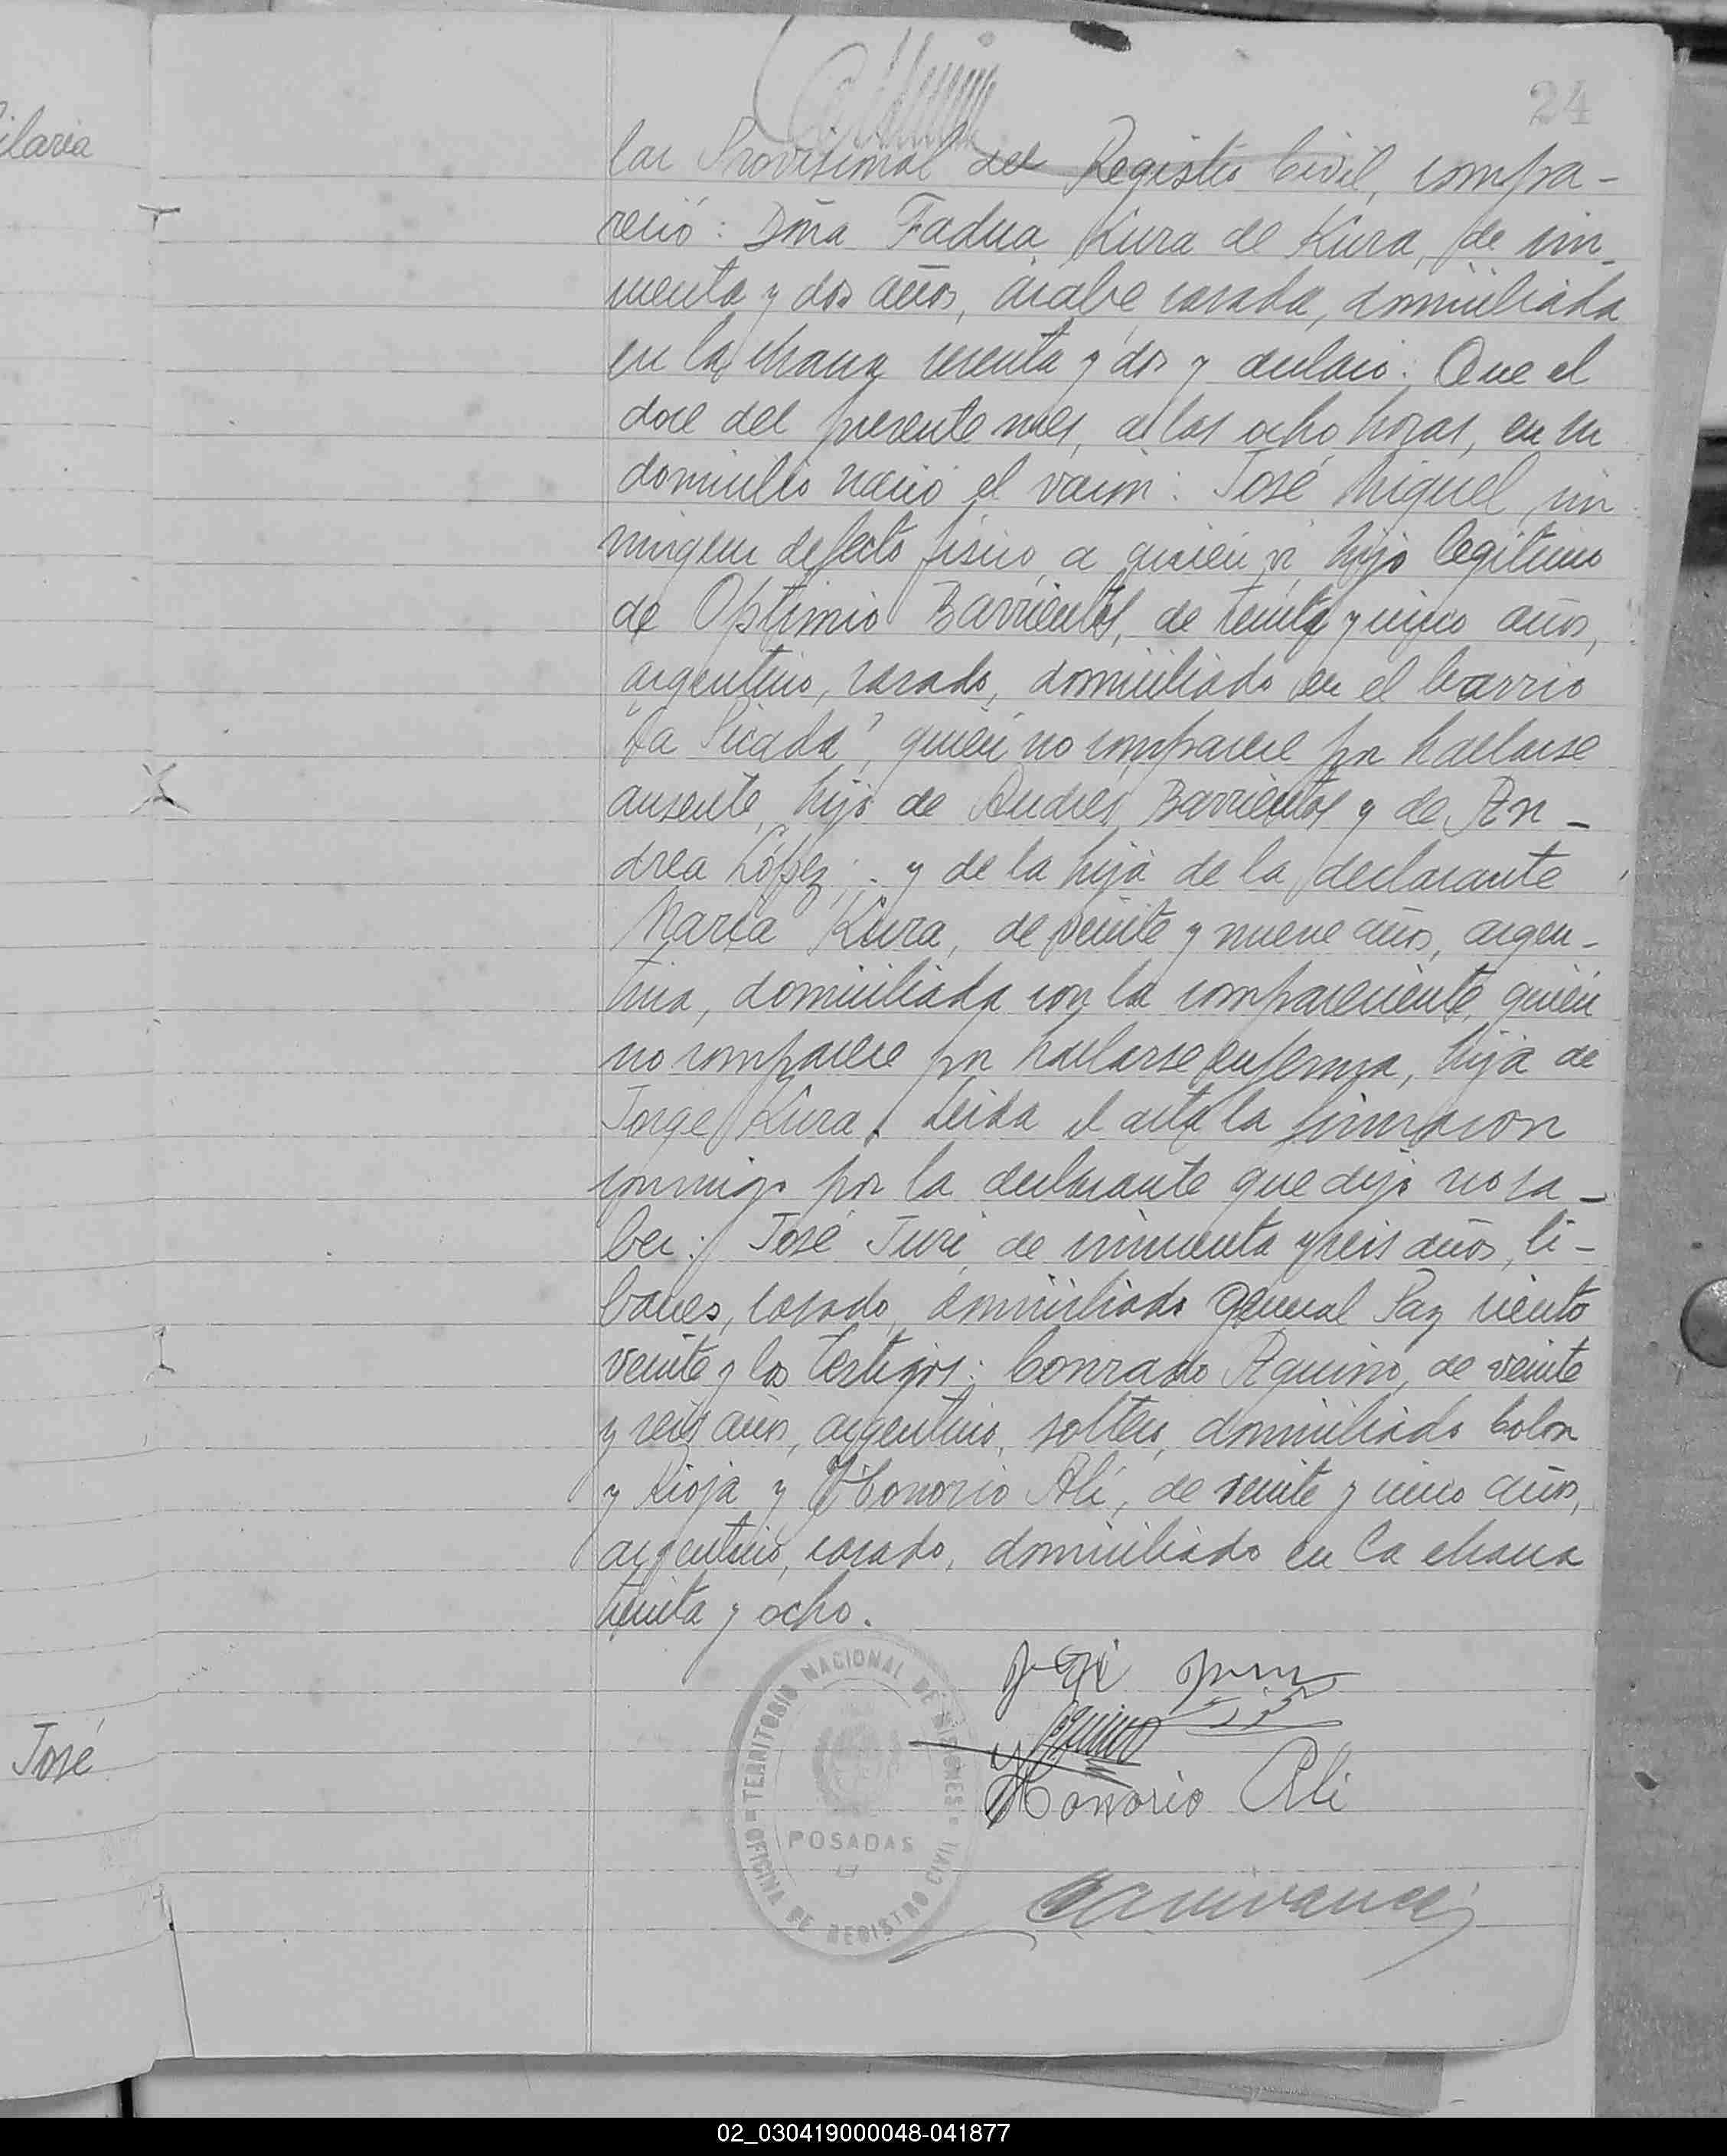 24
ilaria
lar Provisional del Registro Civil, compa-
reció: Dña Fadua Kura de Kura, de cin-
cuenta y dos años, árabe, casada, domiciliada
en la chacra sesenta y dos y declaró: Que el
doce del presente mes, a las ocho horas, en su
domicilio nació el varón: José Miguel, sin
ningun defecto físico, a quien vi, hijo legítimo
de Optimio Barrientos, de treinta y cinco años,
argentino, casado, domiciliado en el barrio
"La Picada", quién no comparece por hallarse
ausente, hijo de Andres Barrientos y de An-
drea López; y de la hija de la declarante
María Kura, de veinte y nueve años, argen-
tina, domiciliada con la compareciente, quién
no comparece por hallarse enferma, hija de
Jorge Kura. Leida el acta la firmaron
conmigo por la declarante que dijo no sa-
ber: José Juri, de cincuenta y seis años, li-
banes, casado, domiciliado General Paz ciento
veinte y los testigos: Conrado Aquino, de veinte
y seis años, argentino, soltero, domiciliado Colon
y Rioja y Honorio Alí, de veinte y cinco años,
argentino, casado, domiciliado en la chacra
treinta y ocho.
José
Aquino
Honorio Ali
José
TERRITORIO NACIONAL DE MISIONES
OFICINA DE REGISTRO CIVIL
POSADAS
02_030419000048-041877